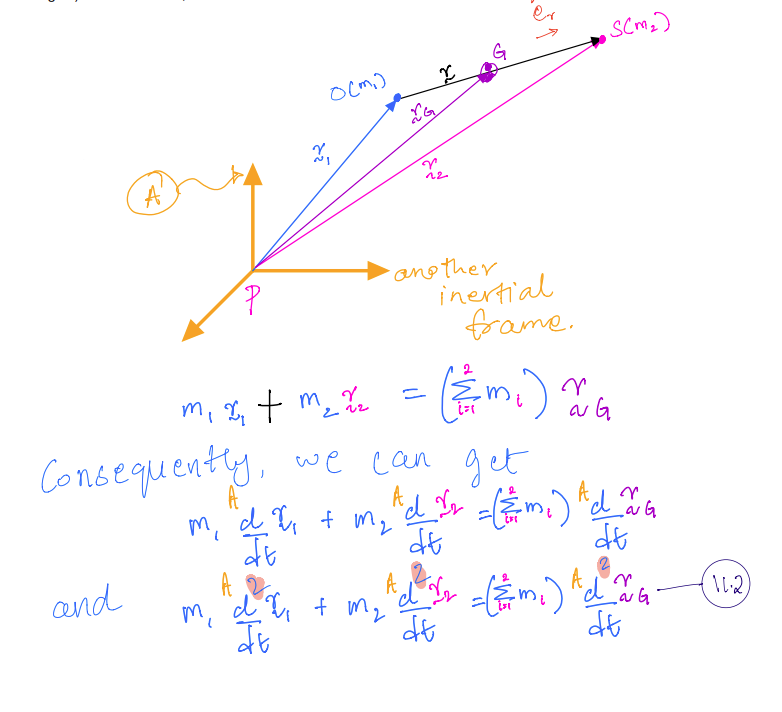 e_r
S(m₂)
G
r
O(m₁)
r_G
r₁
r₂
A
another
inertial
frame.
P
m₁ r₁ + m₂ r₂ = (∑_{i=1}^{2} m_i) r_G
Consequently, we can get
m₁ ᴬd/dt r₁ + m₂ ᴬd/dt r₂ = (∑_{i=1}^{2} m_i) ᴬd/dt r_G
and m₁ ᴬd²/dt r₁ + m₂ ᴬd²/dt r₂ = (∑_{i=1}^{2} m_i) ᴬd²/dt r_G 11.2